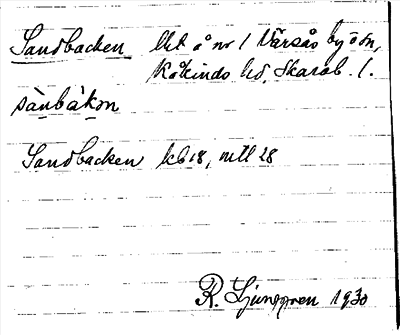 Sandbacken lht å nr 1 Värsås by o sn,
Kåkinds hd, Skarab. l.
sànbàkɔn
Sandbacken kb 18, mtl 28
R. Ljunggren 1930